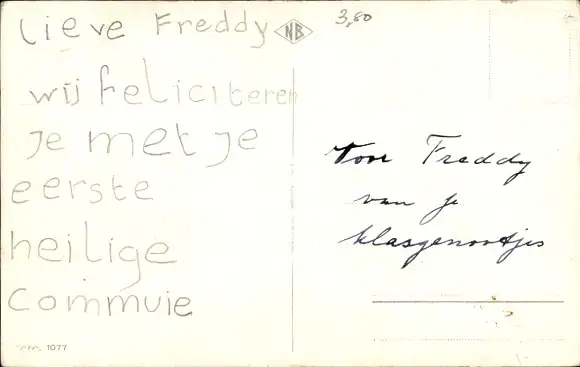 Lieve Freddy
NB
3,80
wij feliciteren
je met je
eerste
heilige
commuie
Voor Freddy
van je
klasgenootjes
1077